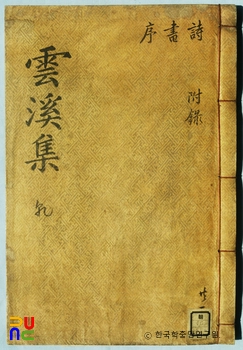 詩書序
附錄
雲溪集
乹
© 한국학중앙연구원